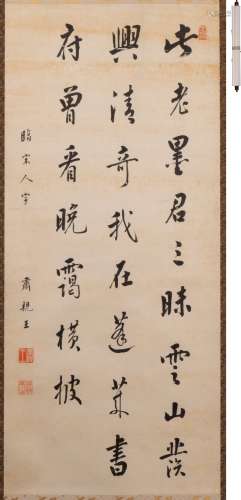 此老墨君三昧雲山發
興清奇我在蓬萊書
府曾看晚靄橫披
臨宋人字
肅親王